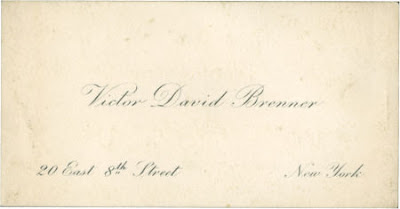 Victor David Brenner
20 East 8th Street New York